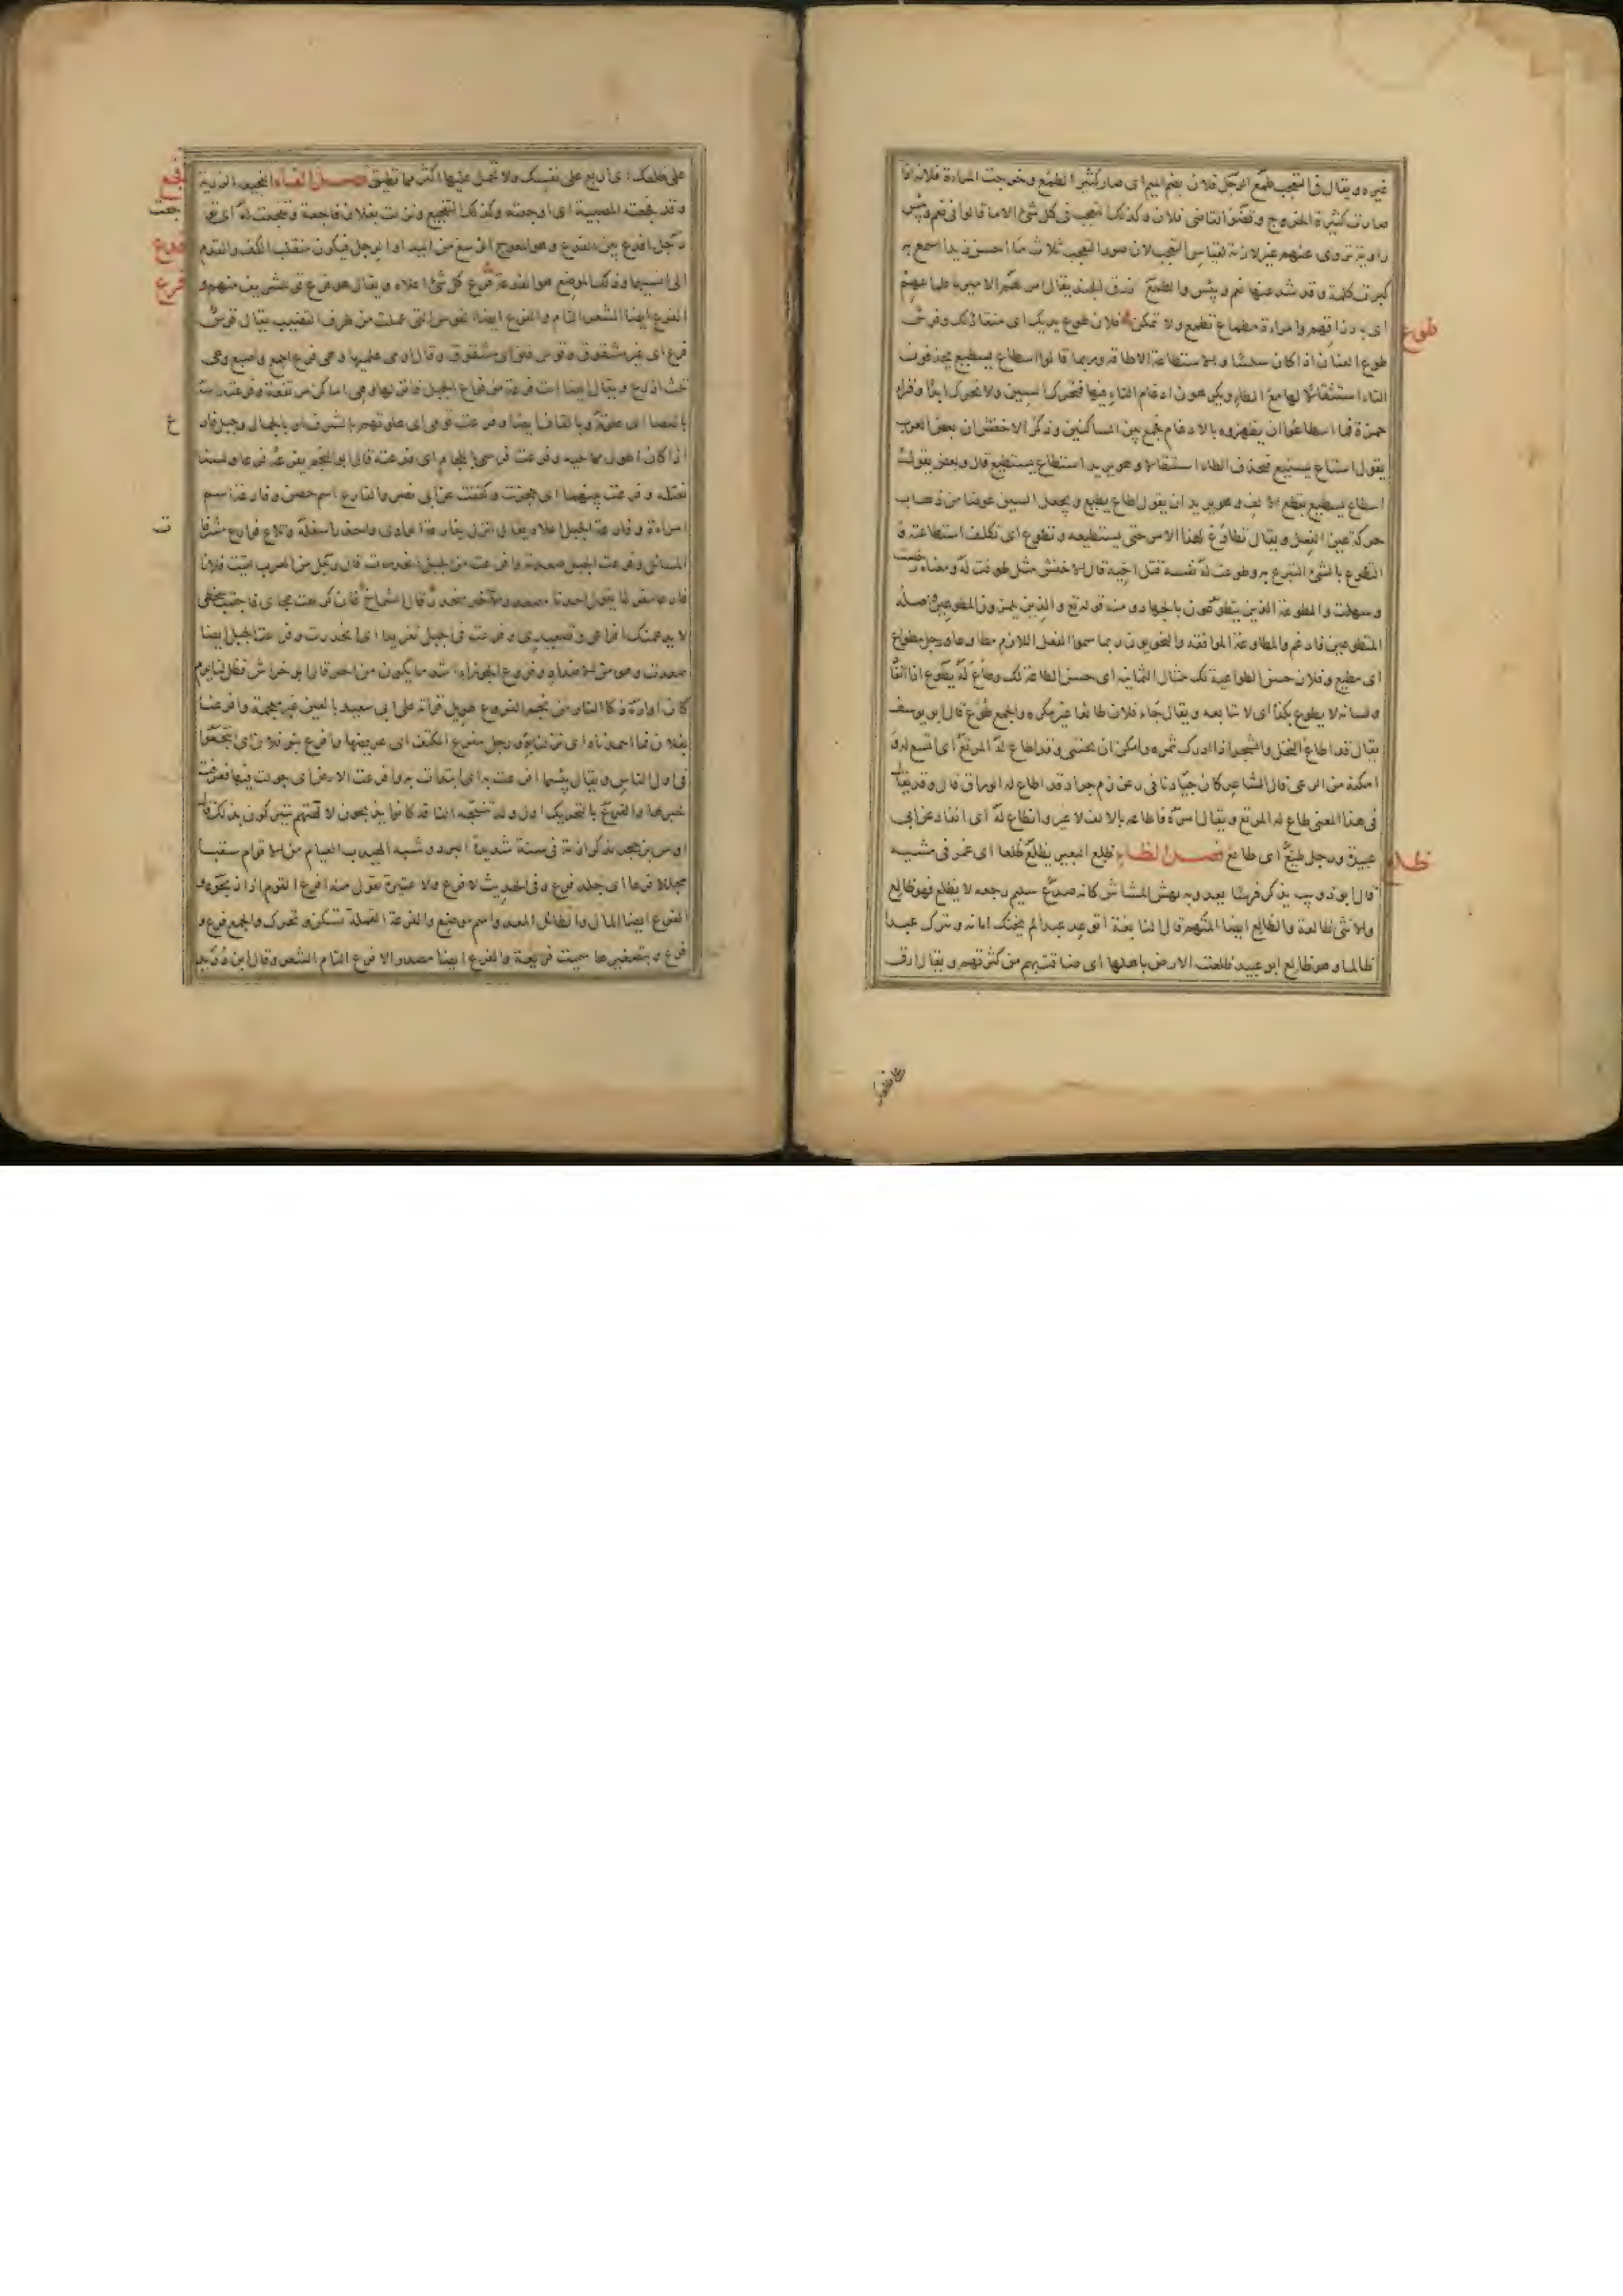 غيره ويقال في التعجب طمع الرجل فلان بضم الميم اى صار كثير الطمع وخرجت المراة فلانة اذا
صارت كثيرة الخروج وقضو القاضى فلان وكذلك التعجب فى كل شئ الا ما قالوا فى نعم وبئس
رواية تروى عنهم غير لازمة لقياس التعجب لان صور التعجب ثلاث ما احسن زيدا اسمع به
كبرت كلمة وقد شذ عنها نعم وبئس والطمع رزق الجند يقال امر لهم الامير باطماعهم
اى بارزاقهم وامراءة مطماع تطمع ولا تمكن فلان طوع يديك اى منقاد لك وفرس
طوع
طوع العنان اذا كان سلسا والاستطاعة الاطاقة وربما قالوا اسطاع يسطيع يحذفون
التاء استثقالا لها مع الطاء ويكرهون ادغام التاء فيها فتحرك السين ولا تحرك ابدا وقراء
حمزة فما اسطاعوا ان يظهروه بالادغام فجمع بين الساكنين وذكر الاخفش ان بعض العرب
يقول استاع يستيع فحذف الطاء استثقالا وهو يريد استطاع يستطيع قال وبعض يقول
اسطاع يسطيع بقطع الالف وهو يريد ان يقول اطاع يطيع ويجعل السين عوضا من ذهاب
حركة عين الفعل ويقال تطاوع لهذا الامر حتى يستطيعه وتطوع اى تكلف استطاعته و
التطوع بالشئ التبرع به وطوعت له نفسه قتل اخيه قال الاخفش مثل طوقت له ومعناه رخصت
وسهلت والمطوعة الذين يتطوعون بالجهاد ومنه قوله تع والذين يلمزون المطوعين اصله
المتطوعين فادغم والمطاوعة الموافقة والنحويون ربما سموا الفعل اللازم مطاوعا ورجل مطواع
اى مطيع وفلان حسن الطواعية لك مثال الثمانية اى حسن الطاعة لك وطاع له يطوع اذا انقاد
ولسانه لا يطوع بكذا اى لا يتابعه ويقال جاء فلان طائعا غير مكره والجمع طوع قال ابو يوسف
يقال قد اطاع النخل والشجر اذا ادرك ثمره وامكن ان يجتنى وقد اطاع له المرتع اى اتسع له و
امكنه من الرعى قال الشاعر كان جيادنا فى رعن زم جراد قد اطاع له الوراق قال وقد يقال
فى هذا المعنى طاع له المرتع ويقال امره فاطاعه بالالف لا غير وانطاع له اى انقاد عن ابى
عبيدة ورجل طيع اى طائع فصل الظاء ظلع البعير يظلع ظلعا اى غمز فى مشيه
ظلع
قال ابو ذويب يذكر فرسا يعدو به نهش المشاش كانه صدع سليم رجعه لا يظلع فهو ظالع
والانثى ظالعة والظالع ايضا المتهم قال النابغة اتوعد عبدا لم يخنك امانة وتترك عبدا
ظالما وهو ظالع ابو عبيد ظلعت الارض باهلها اى ضاقت بهم من كثرتهم ويقال ارق
على ظلعك
على ظلعك اى اربع على نفسك ولا تحمل عليها اكثر مما تطيق فصل الفاء الفجيعة الرزية
فجع
وقد فجعته المصيبة اى اوجعته وكذلك التفجيع ونزلت بفلان فاجعة وتفجعت له اى
توجعت
رجل افدع بين الفدع وهو المعوج الرسغ من اليد او الرجل فيكون منقلب الكف والقدم
فدع
الى انسيها وذلك الموضع هو الفدعة فرع كل شئ اعلاه ويقال هو فرع قومه للشريف منهم و
فرع
الفرع ايضا الشعر التام والفرع ايضا القوس التى عملت من طرف القضيب يقال قوس
فرع اى غير مشقوق وقوس فلق اى مشقوق وقال ارمى عليها وهى فرع اجمع وهى
ثلث اذرع ويقال ايضا ائت فرعة من فراع الجبل فانزلها وهى اماكن مرتفعة وفرعت راسه
بالعصا اى علوته وبالقاف ايضا وفرعت قومى اى علوتهم بالشرف او بالجمال وجبل فارع
اذا كان اطول مما يليه وفرعت فرسى باللجام اى قدعته قال ابو النجم يفرعه فرعا ولسنا
نعتله وفرعت بينهما اى حجزت وكففت عن ابى نصر والفارع اسم حصن وفارعة اسم
امراءة وفارعة الجبل اعلاه يقال انزل بفارعة الوادى واحذر اسفله وتلاع فوارع مشرفات
المسائل وفرعت الجبل صعدته وافرعت من الجبل انحدرت قال رجل من العرب لقيت فلانا
فارعا مفرعا يقول احدنا مصعد والاخر منحدر قال الشماخ فان كرهت هجائى فاجتنب سخطى
لا يدهمنك افراعى وتصعيدى وفرعت فى الجبل تفريعا اى انحدرت وفرعت الجبل ايضا
صعدت وهو من الاضداد وفروع الجوزاء اشد ما يكون من الحر قال ابو خراش فظل لنا يوم
كان اواره ذكا النار من نجم الفروع طويل قراته على ابى سعيد بالعين غير معجمة وافرعنا
بفلان فما احمدناه اى نزلنا به ورجل مفرع الكتف اى عريضها وافرع بنو فلان اى انتجعوا
فى اول الناس ويقال بئسما افرعت به اى ابتدات به وافرعت الارض اى جولت فيها فعرفت
خبرها والفرع بالتحريك اول ولد تنتجه الناقة كانوا يذبحونه لالهتهم يتبركون بذلك قال
اوس بن حجر يذكر ازمة فى سنة شديدة البرد وشبه الهيدب العبام من الاقوام سقبا
مجللا فرعا اى جلد فرع وفى الحديث لا فرع ولا عتيرة تقول منه افرع القوم اذا ذبحوه و
الفرع ايضا المال الطائل المعد واسم موضع والفرعة القملة تسكن وتحرك والجمع فرع و
فرع وبتصغيرها سميت فريعة والفرع ايضا مصدر الافرع التام الشعر وقال ابن دريد